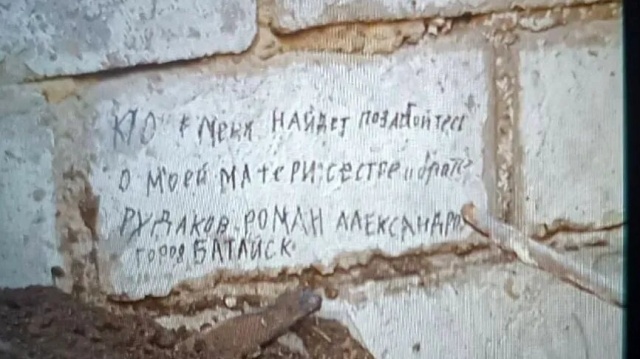 КТО меня НАЙДЕТ позаботьтесь
о моей МАтеРИ сестре и брате
РУДАКОВ РОМАН АЛЕКСАНДРО
город БАТАЙСК